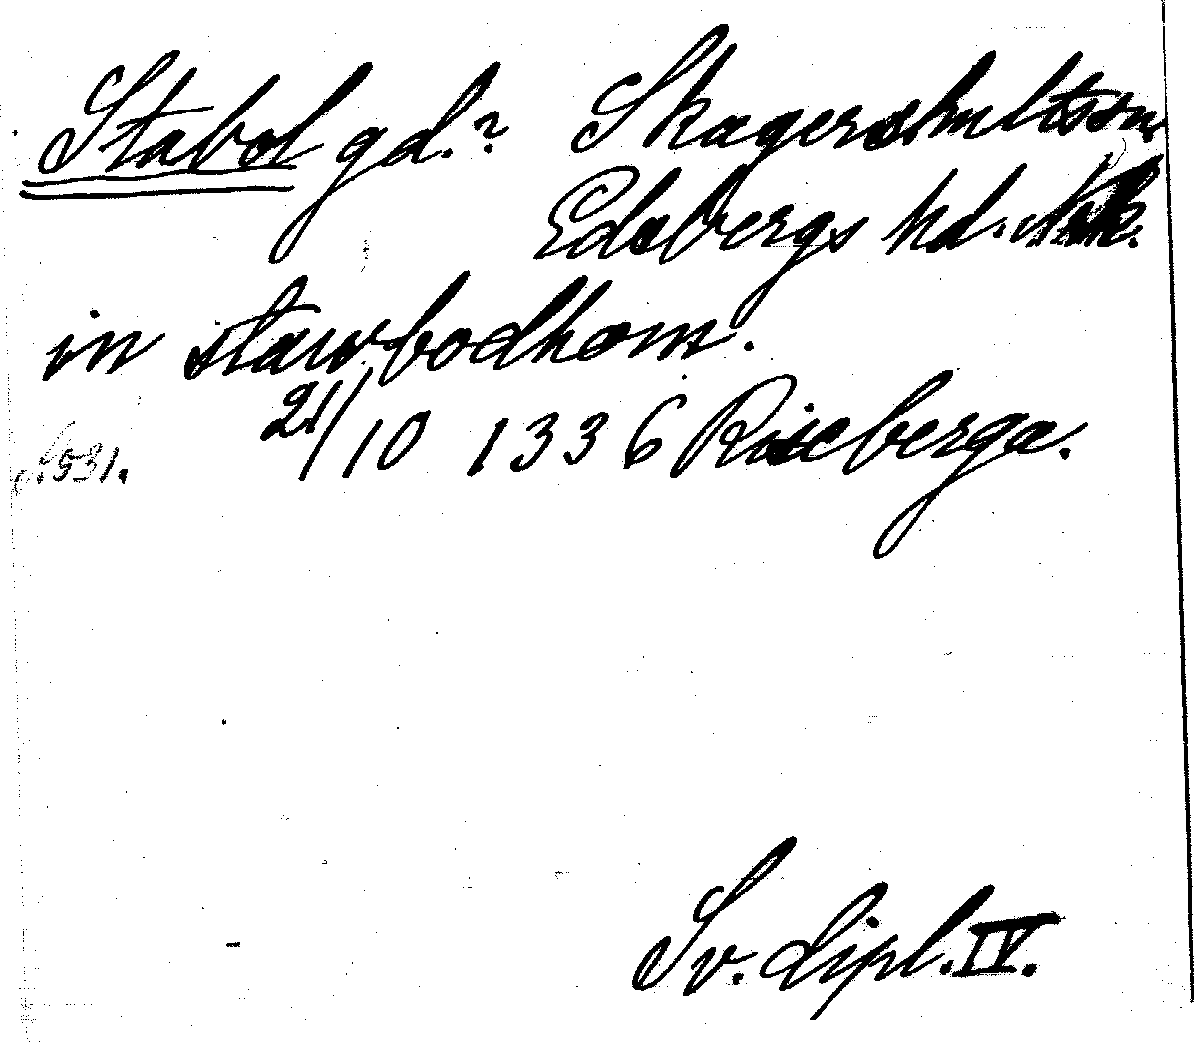 Stabol gd.? Skagershults sn.
Edsbergs hd.
in stawrbodhom.
21/10 1336 Riseberga.
s. 531.
Sv. dipl. IV.